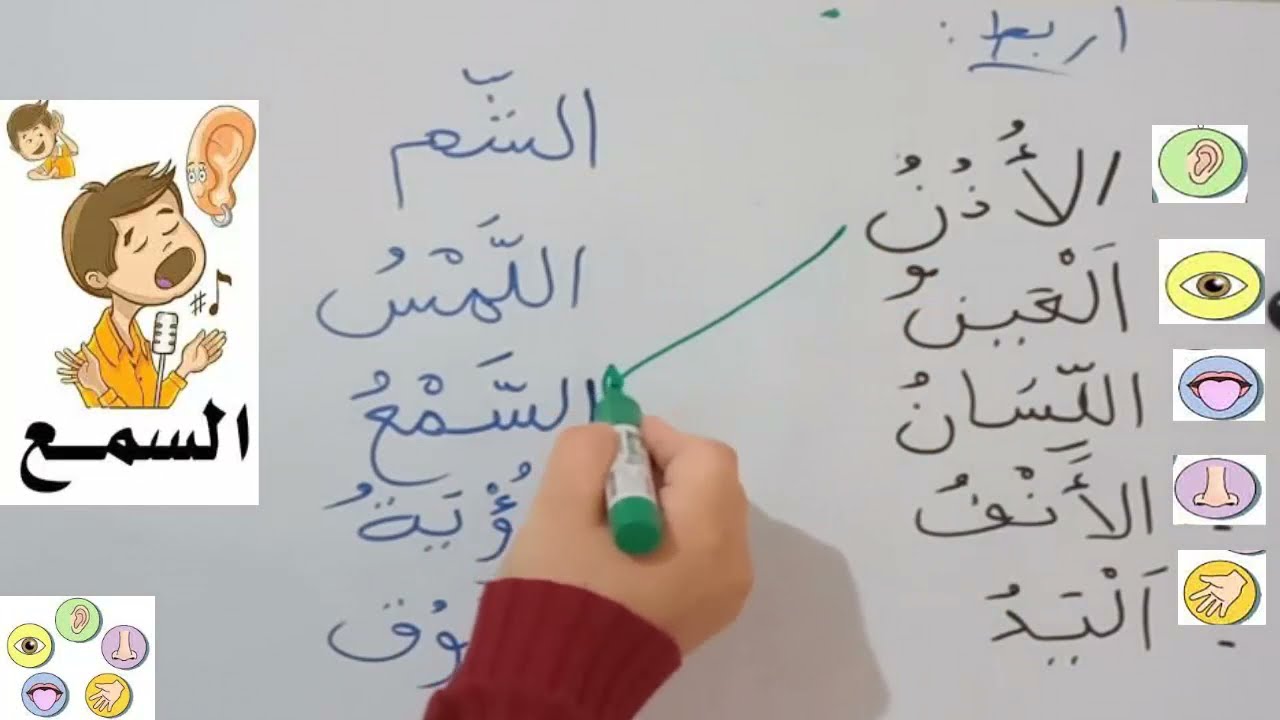 اربط :
الأُذُنُ
اَلْعَينُ
اللِّسَانُ
الأَنْفُ
اَلْيَدُ
الشَّم
اللَّمْسُ
السَّمْعُ
السمع